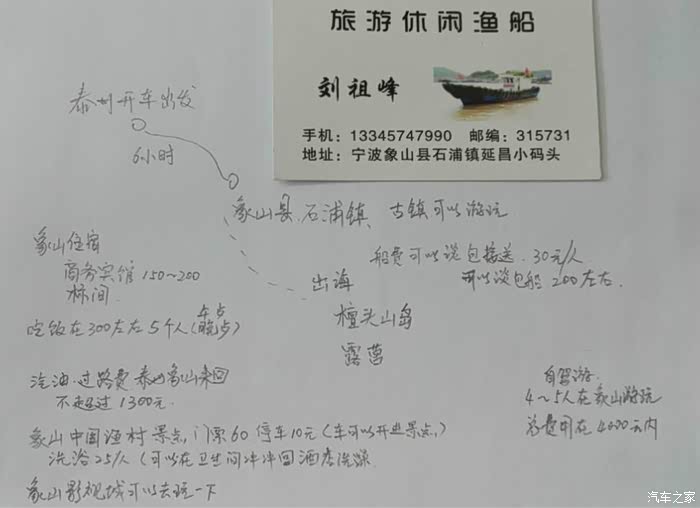 旅游休闲渔船
刘祖峰
手机：13345747990 邮编：315731
地址：宁波象山县石浦镇延昌小码头
泰州开车出发
6小时
象山县、石浦镇、古镇可以游玩
船费可以谈包接送 30元/人
可以谈包船 200左右
出海
檀头山岛
露营
象山住宿
商务宾馆 150~200
标间
吃饭在300左右5个人（午点 晚点）
汽油、过路费 泰州象山来回
不超过1300元
自驾游
4~5人在象山游玩
总费用在4000元内
象山中国渔村景点，门票60 停车10元（车可以开进景点）
洗浴25/人（可以在卫生间冲冲回酒店洗澡
象山影视城可以去玩一下
汽车之家